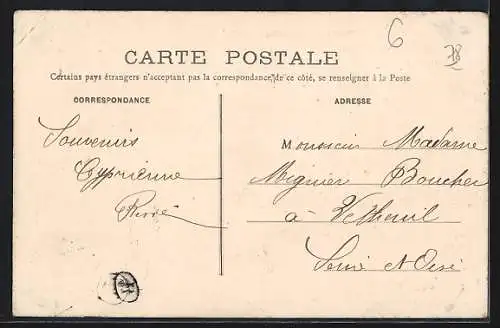 6
78
CARTE POSTALE
Certains pays étrangers n'acceptant pas la correspondance de ce côté, se renseigner à la Poste
CORRESPONDANCE
ADRESSE
Souvenirs
Cyprienne
Monsieur Madame
Mignier Boucher
à Vetheuil
Seine et Oise